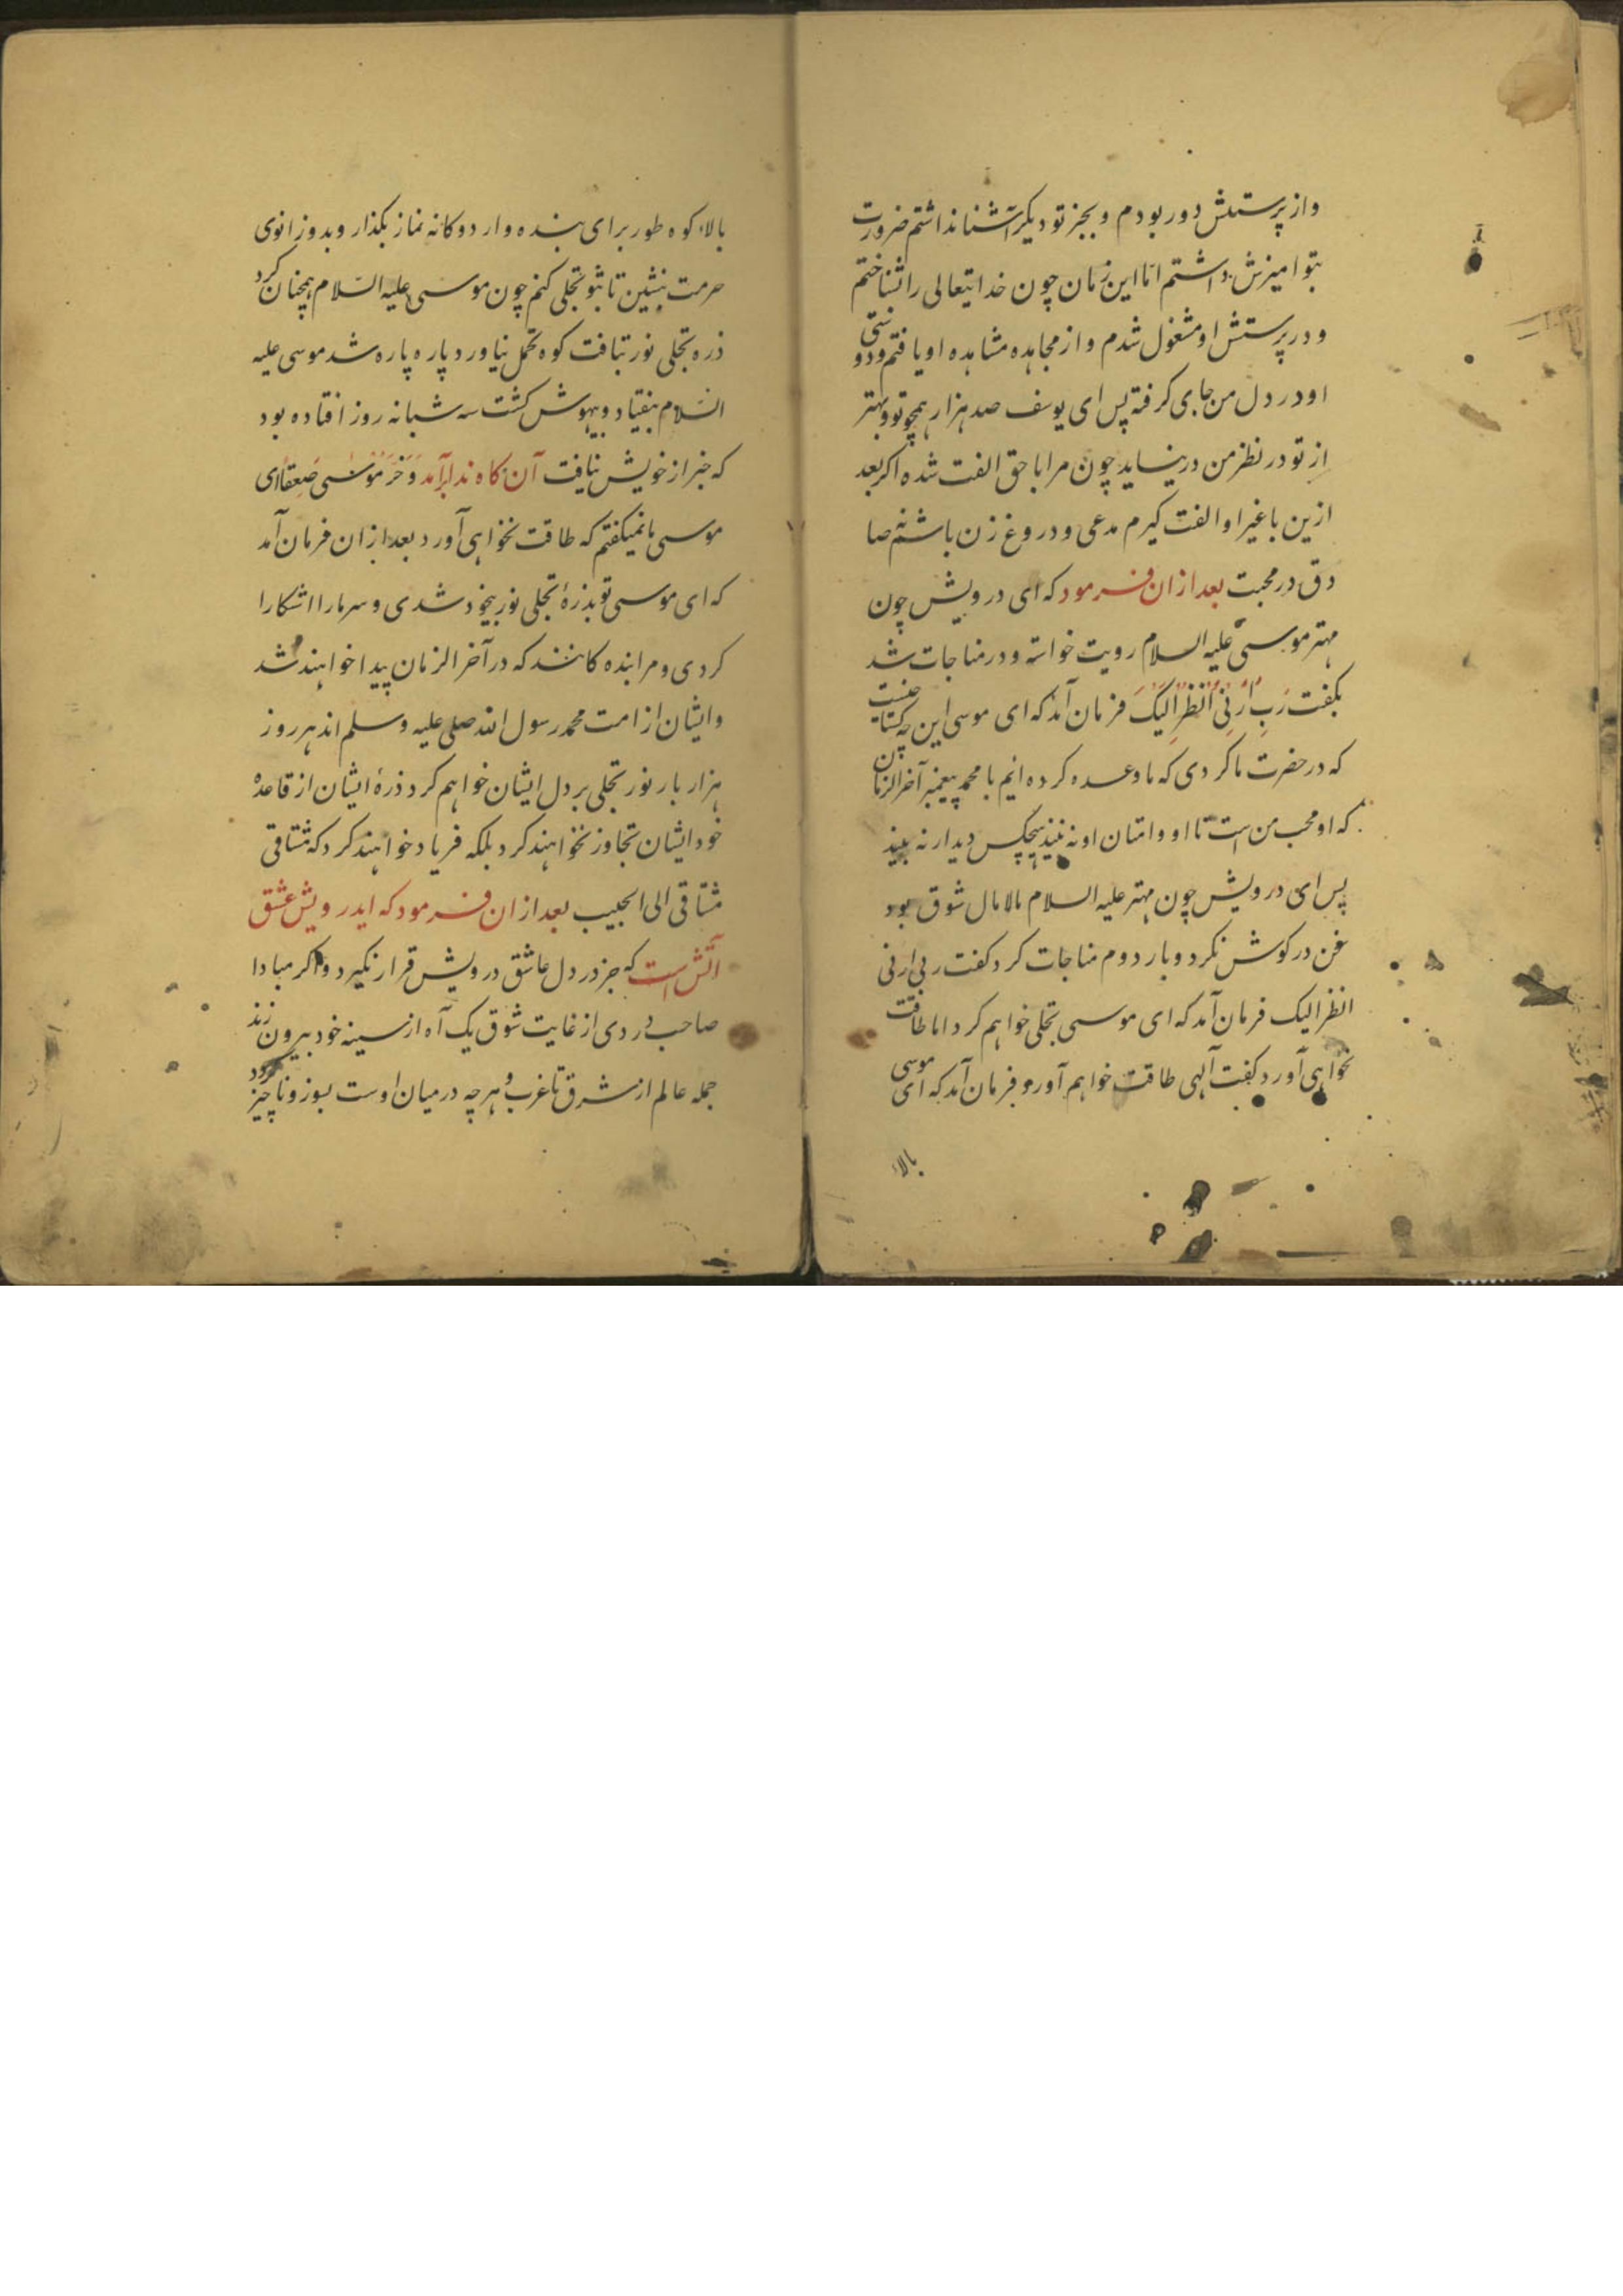 و از پرستش دور بودم و بجز تو دیگر آشنا نداشتم ضرورت
بتو امیزش داشتم اما این زمان چون خدایتعالی را شناختم
و در پرستش او مشغول شدم و از مجاهده مشاهده او یافتم و دوستی
او در دل من جای کرفته پس ای یوسف صد هزار همچو تو و بهتر
از تو در نظر من در نیاید چون مرا با حق الفت شده اکر بعد
ازین با غیر او الفت کیرم مدعی و دروغ زن باشم نه صا
دق در محبت بعد ازان فرمود که ای درویش چون
مهتر موسی علیه السلام رویت خواسته و در مناجات شد
بکفت رَبِّ اَرِنِی اَنْظُرْ اِلَیْکَ فرمان آمد که ای موسی این چه کستاخیست
که در حضرت ما کردی که ما وعده کرده ایم با محمد پیغمبر آخر الزمان
که او محب من است تا او و امتان او نه بیند هیچکس دیدار نه بیند
پس ای درویش چون مهتر علیه السلام مالامال شوق بود
سخن در کوش نکرد و بار دوم مناجات کرد کفت ربی ارنی
انظر الیک فرمان آمد که ای موسی تجلی خواهم کرد اما طاقت
نخواهی آورد کفت آلهی طاقت خواهم آورد فرمان آمد که ای موسی
بالاء
بالاء کوه طور برای بنده وار دوکانه نماز بکذار و بدو زانوی
حرمت بنشین تا بتو تجلی کنم چون موسی علیه السلام همچنان کرد
ذره تجلی نور بتافت کوه تحمل نیاورد پاره پاره شد موسی علیه
السلام بیفتاد و بیهوش کشت سه شبانه روز افتاده بود
که خبر از خویش نیافت آن کاه ندا برآمد وَ خَرَّ مُوْسٰی صَعِقًا ای
موسی ما نمیکفتم که طاقت نخواهی آورد بعد ازان فرمان آمد
که ای موسی تو بذرۀ تجلی نور بیخود شدی و سر ما را اشکارا
کردی و مرا بنده کانند که در آخر الزمان پیدا خواهند شد
و ایشان از امت محمد رسول الله صلی علیه وسلم اند هر روز
هزار بار نور تجلی بر دل ایشان خواهم کرد ذرۀ ایشان از قاعدۀ
خود ایشان تجاوز نخواهند کرد بلکه فریاد خواهند کرد که مشتاقی
مشتاقی الی الحبیب بعد ازان فرمود که ایدرویش عشق
آتش است که جز در دل عاشق درویش قرار نکیرد و اکر مبادا
صاحب دردی از غایت شوق یک آه از سینه خود بیرون زند
جمله عالم از مشرق تا غرب و هر چه در میان اوست بسوزد و ناچیز کردد